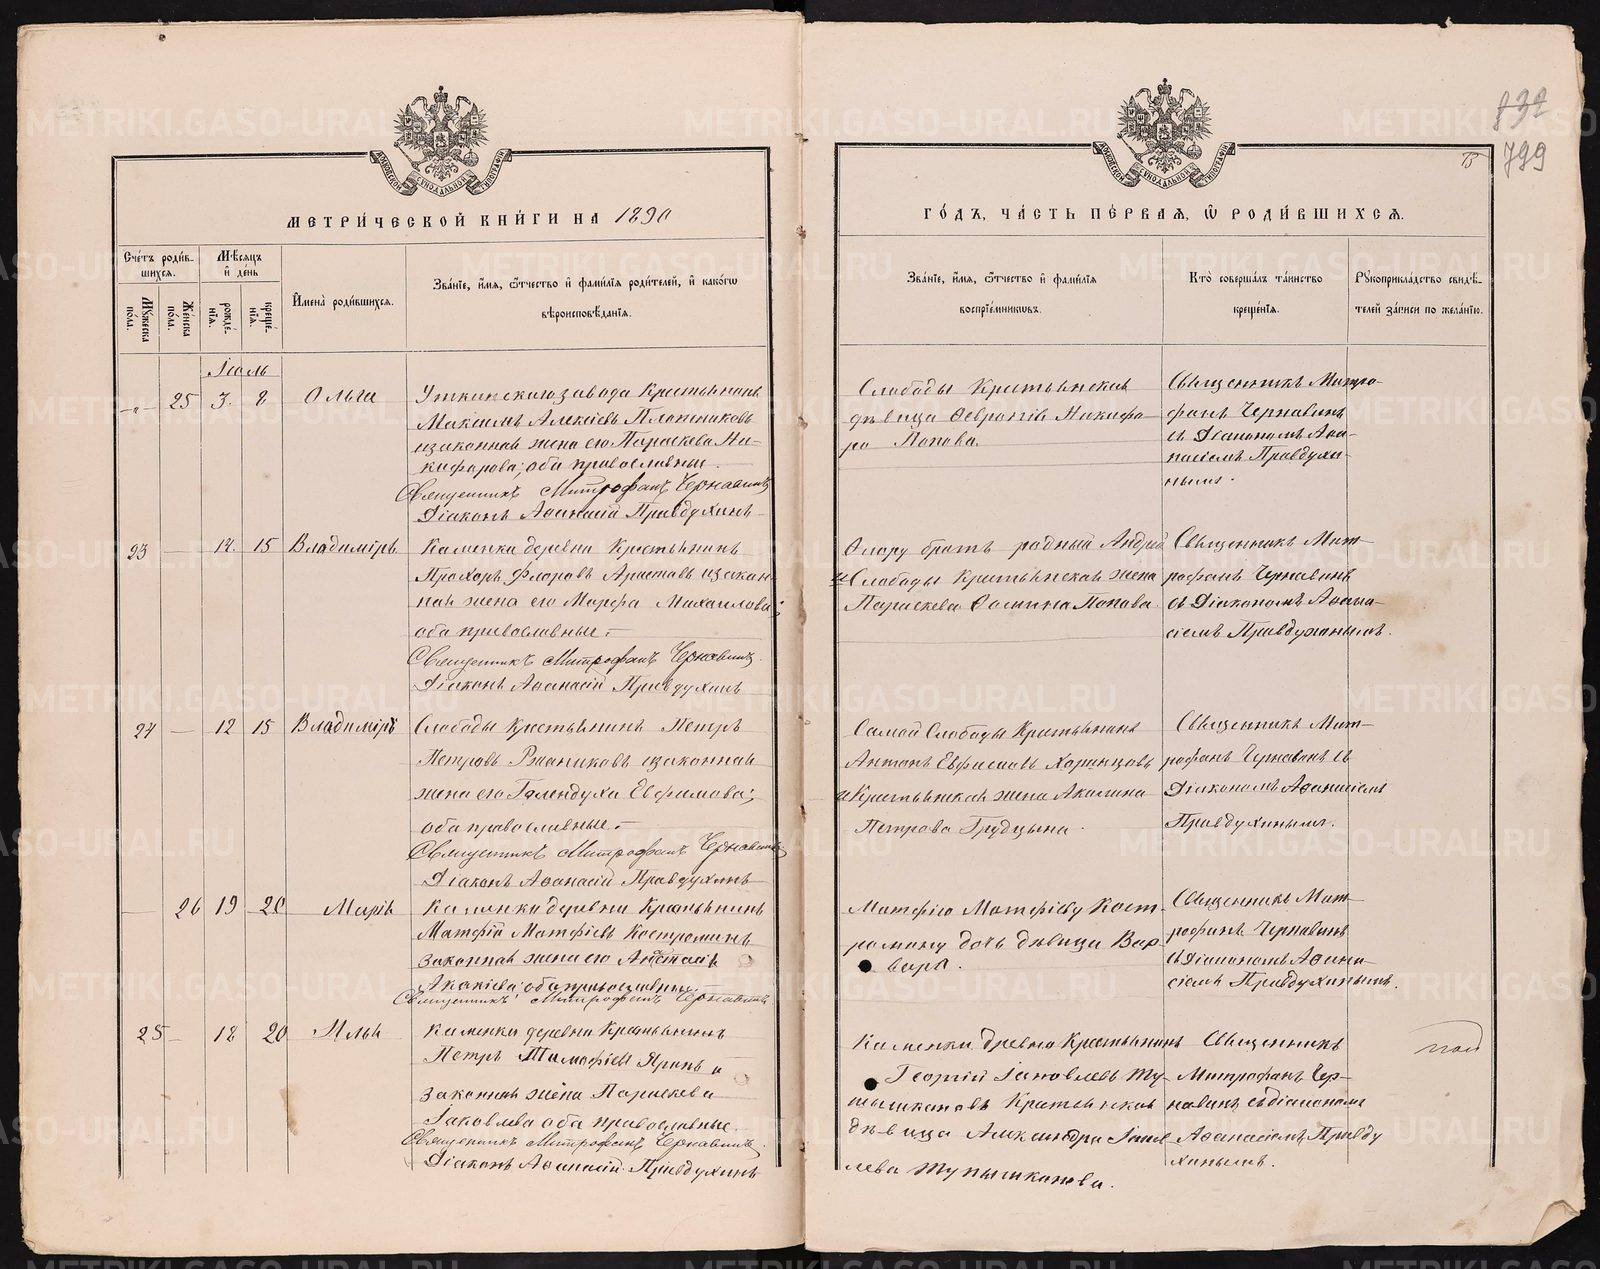 832
799
МЕТРИ́ЧЕСКОЙ КНИ́ГИ НА 1890
ГО́ДЪ, ЧА́СТЬ ПЕ́РВАЯ, Ѽ РОДИ́ВШИХСЯ.
Сче́тъ роди́в-
шихся.
Мꙋ́жеска по́ла.
Же́нска по́ла.
Мѣ́сяцъ и҆ де́нь
рожде́нїя.
креще́нїя.
И҆мена̀ роди́вшихся.
Зва́нїе, и҆́мя, ѻ҆́тчество и҆ фами́лїя роди́телей, и҆ како́гѡ
вѣроисповѣ́данїя.
Зва́нїе, и҆́мя, ѻ҆́тчество и҆ фами́лїя
воспрїе́мникѡвъ.
Кто̀ соверша́лъ та́инство
креще́нїя.
Рꙋкоприкла́дство свидѣ́-
телей за́писи по жела́нїю.
Іюль
25 3. 8 Ольга
Уткинскаго завода Крестьянинъ
Максимъ Алексѣевъ Плотниковъ
и законная жена его Параскева Ни-
кифорова; оба православные.
Священникъ Митрофанъ Чернавинъ
Діаконъ Аѳанасій Правдухинъ
Слободы Крестьянская
дѣвица Ѳевронія Никифо-
ро Попова.
Священникъ Митро-
фанъ Чернавинъ
съ Діакономъ Аѳа-
насіемъ Правдухи-
нымъ.
23 14. 15 Владиміръ
Каменки деревни Крестьянинъ
Прохоръ Флоровъ Аристовъ и закон-
ная жена его Марѳа Михаилова;
оба православные.
Священникъ Митрофанъ Чернавинъ.
Діаконъ Аѳанасій Правдухинъ
Флору братъ родный Андрей
и Слободы Крестьянская жена
Параскева Ѳомина Попова
Священникъ Мит-
рофанъ Чернавинъ
съ Діакономъ Аѳана-
сіемъ Правдухинымъ.
24 12 15 Владиміръ
Слободы Крестьянинъ Петръ
Петровъ и законная
жена его Гликерія Евфимова;
оба православные.
Священникъ Митрофанъ Чернавинъ
Діаконъ Аѳанасій Правдухинъ
Самой Слободы Крестьянинъ
Антонъ
и Крестьянская жена Акилина
Петрова Грудцына.
Священникъ Мит-
рофанъ Чернавинъ съ
Діакономъ Аѳанасіемъ
Правдухинымъ.
26 19 20 Марія
Каменки деревни Крестьянинъ
Матфій Матфіевъ Костроминъ
законная жена его Анастасія
Акакіева; оба православные.
Священникъ Митрофанъ Чернавинъ
Матфію Матфіеву Кост-
ромину дочь дѣвица Вар-
вара.
Священникъ Мит-
рофанъ Чернавинъ
съ Діакономъ Аѳана-
сіемъ Правдухинымъ.
25 18 20 Илья
Каменки деревни Крестьянинъ
Петръ Тимофѣевъ Яринъ и
законная жена Параскева
Іаковлева оба православные.
Священникъ Митрофанъ Чернавинъ.
Діаконъ Аѳанасій Правдухинъ
Каменки древни Крестьянинъ
Георгій Іаковлевъ Ту-
пышкановъ Крестьянская
дѣвица Александра Іаков-
лева Тупышканова.
Священникъ
Митрофанъ Чер-
навинъ съ діакономъ
Аѳанасіемъ Правду
хинымъ.